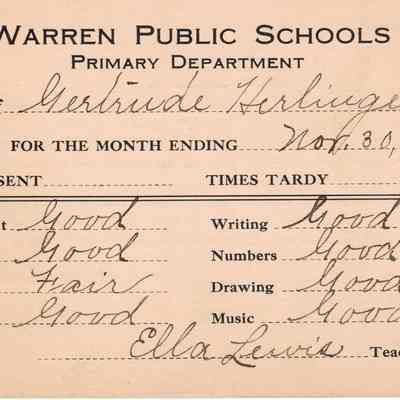 WARREN PUBLIC SCHOOLS
PRIMARY DEPARTMENT
Gertrude Herlinge
FOR THE MONTH ENDING Nov. 30,
SENT TIMES TARDY
t Good Writing Good
Good Numbers Good
Fair Drawing Good
Good Music Good
Ella Lewis Teac